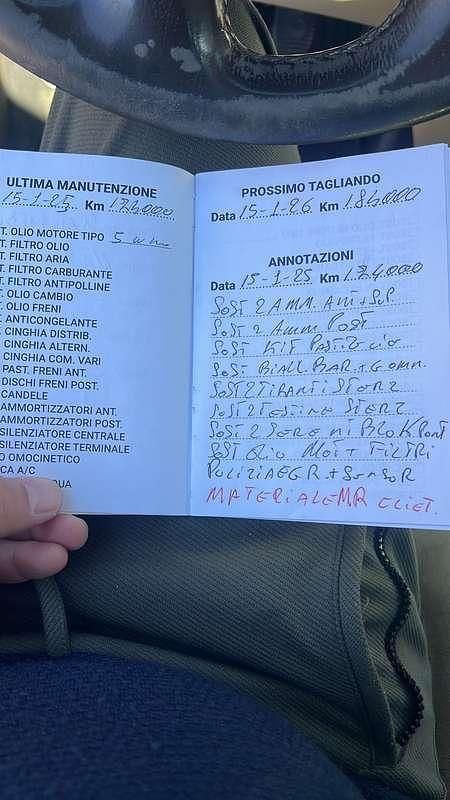 ULTIMA MANUTENZIONE
15-1-25 Km 174000
T. OLIO MOTORE TIPO 5 W
T. FILTRO OLIO
T. FILTRO ARIA
T. FILTRO CARBURANTE
T. FILTRO ANTIPOLLINE
T. OLIO CAMBIO
T. OLIO FRENI
T. ANTICONGELANTE
CINGHIA DISTRIB.
CINGHIA ALTERN.
CINGHIA COM. VARI
PAST. FRENI ANT.
DISCHI FRENI POST.
CANDELE
AMMORTIZZATORI ANT.
AMMORTIZZATORI POST.
SILENZIATORE CENTRALE
SILENZIATORE TERMINALE
O OMOCINETICO
CA A/C
QUA
PROSSIMO TAGLIANDO
Data 15-1-26 Km 184000
ANNOTAZIONI
Data 15-1-25 Km 174000
SOST 2 AMM. ANT+SUP.
SOST 2 AMM POST
SOST KIT POST.
SOST BIALL BAR.+GOMM.
SOST 2 TIRANTI STERZ
SOST 2 TESTINE STERZ
SOST 2 SERE
SOST OLIO MOT+FILTRI
POLIZIA EGR.+SENSOR
MATERIALE MR CLIET.